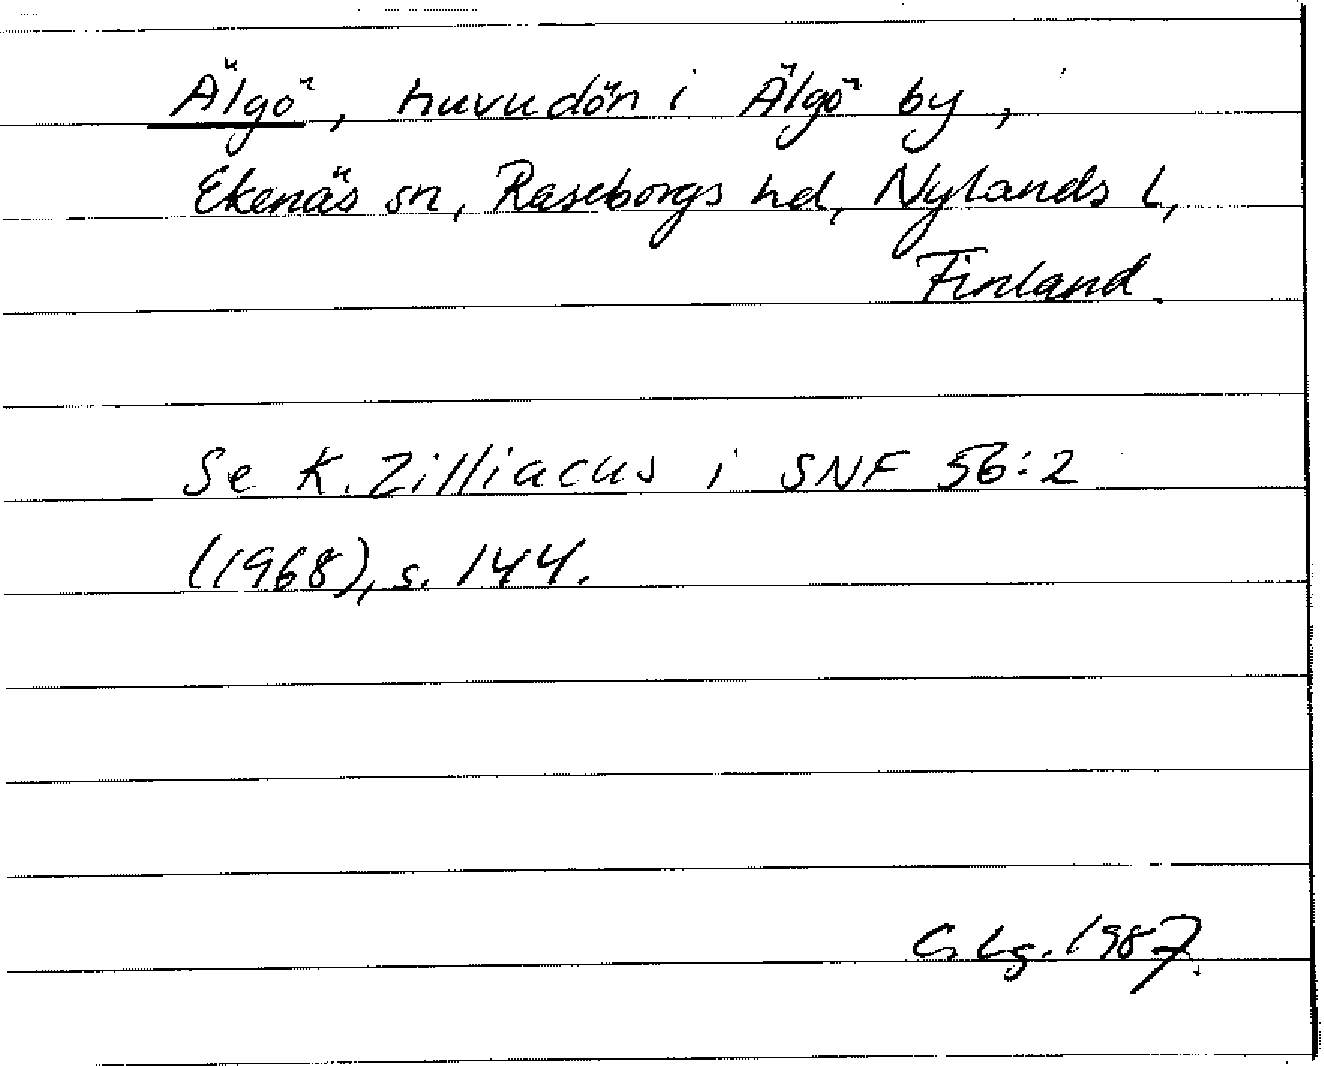 Älgö, huvudön i Älgö by,
Ekenäs sn, Raseborgs hd, Nylands L,
Finland.
Se K. Zilliacus i SNF 56:2
(1968), s. 144.
G. Lg. 1987.